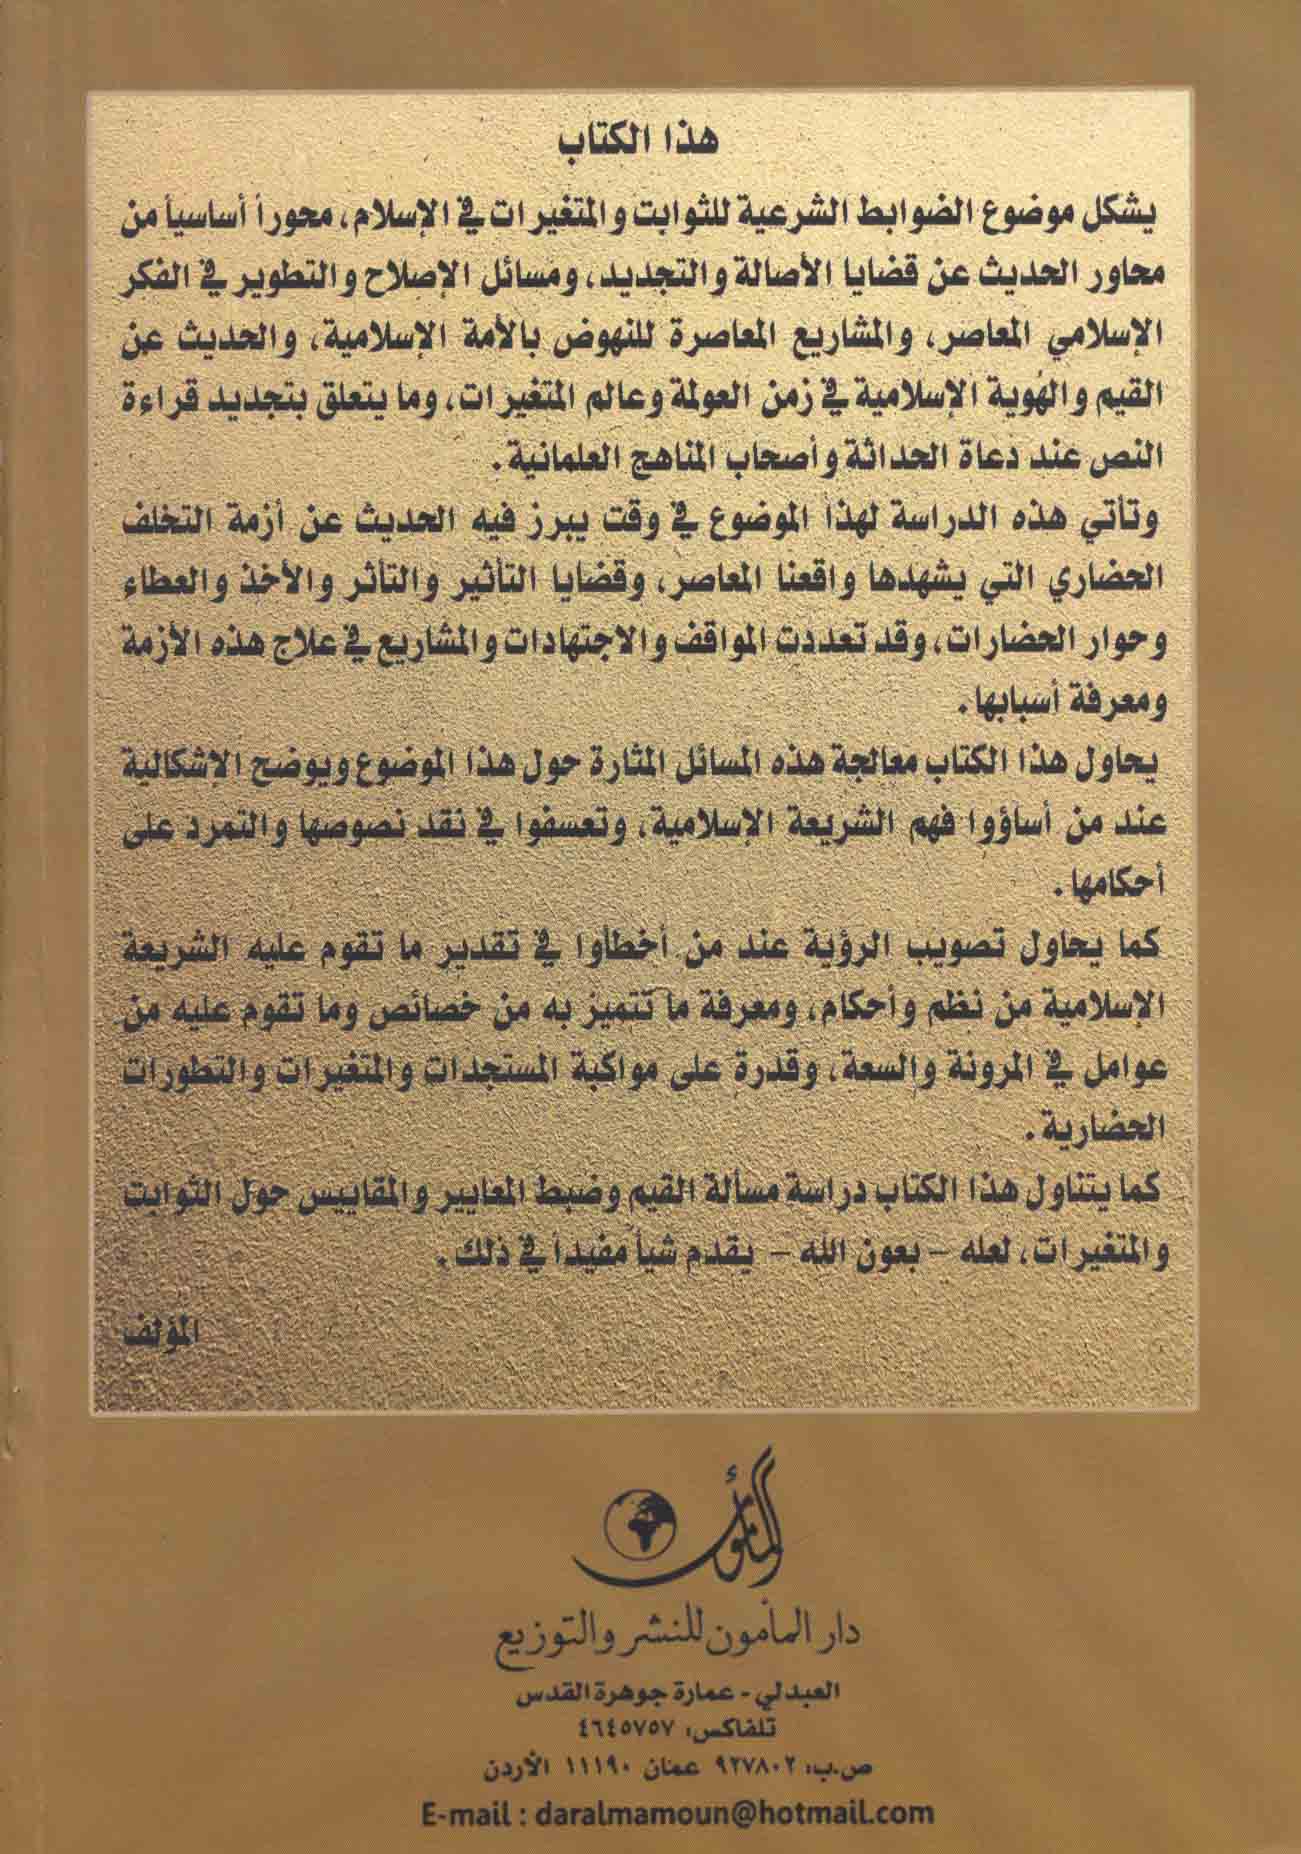 هذا الكتاب
يشكل موضوع الضوابط الشرعية للثوابت والمتغيرات في الإسلام، محوراً أساسياً من
محاور الحديث عن قضايا الأصالة والتجديد، ومسائل الإصلاح والتطوير في الفكر
الإسلامي المعاصر، والمشاريع المعاصرة للنهوض بالأمة الإسلامية، والحديث عن
القيم والهُوية الإسلامية في زمن العولمة وعالم المتغيرات، وما يتعلق بتجديد قراءة
النص عند دعاة الحداثة وأصحاب المناهج العلمانية.
وتأتي هذه الدراسة لهذا الموضوع في وقت يبرز فيه الحديث عن أزمة التخلف
الحضاري التي يشهدها واقعنا المعاصر، وقضايا التأثير والتأثر والأخذ والعطاء
وحوار الحضارات، وقد تعددت المواقف والاجتهادات والمشاريع في علاج هذه الأزمة
ومعرفة أسبابها.
يحاول هذا الكتاب معالجة هذه المسائل المثارة حول هذا الموضوع ويوضح الإشكالية
عند من أساؤوا فهم الشريعة الإسلامية، وتعسفوا في نقد نصوصها والتمرد على
أحكامها.
كما يحاول تصويب الرؤية عند من أخطأوا في تقدير ما تقوم عليه الشريعة
الإسلامية من نظم وأحكام، ومعرفة ما تتميز به من خصائص وما تقوم عليه من
عوامل في المرونة والسعة، وقدرة على مواكبة المستجدات والمتغيرات والتطورات
الحضارية.
كما يتناول هذا الكتاب دراسة مسألة القيم وضبط المعايير والمقاييس حول الثوابت
والمتغيرات، لعله - بعون الله - يقدم شيأ مفيداً في ذلك.
المؤلف
المأمون
دار المأمون للنشر والتوزيع
العبدلي - عمارة جوهرة القدس
تلفاكس: ٤٦٤٥٧٥٧
ص.ب: ٩٢٧٨٠٢ عمان ١١١٩٠ الأردن
E-mail : daralmamoun@hotmail.com